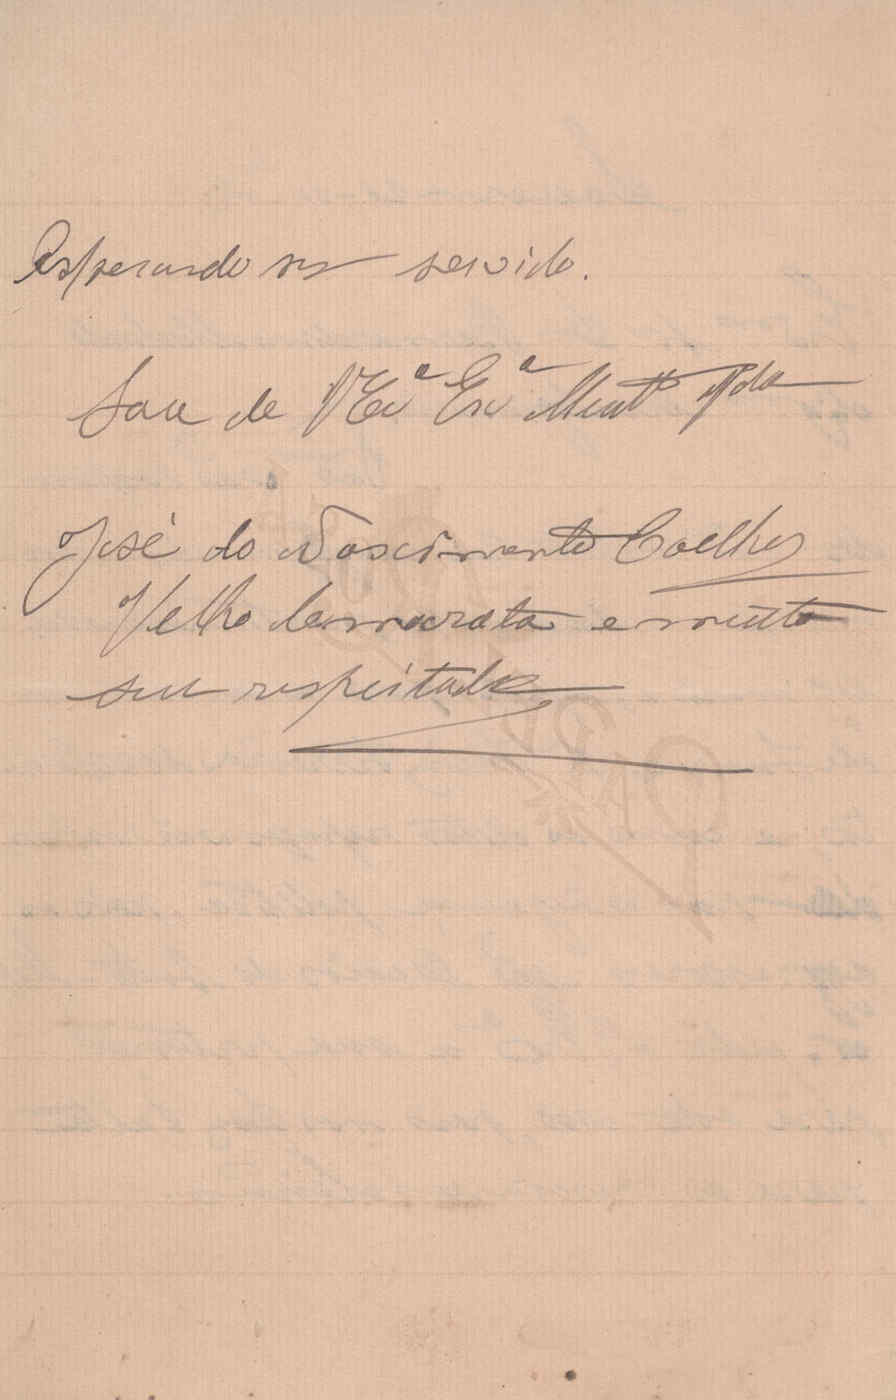 Esperando ser servido.
Sou de VExª Exª Muitº
José do Nascimento Coelho
Velho Camarada e muito
seu respeitador